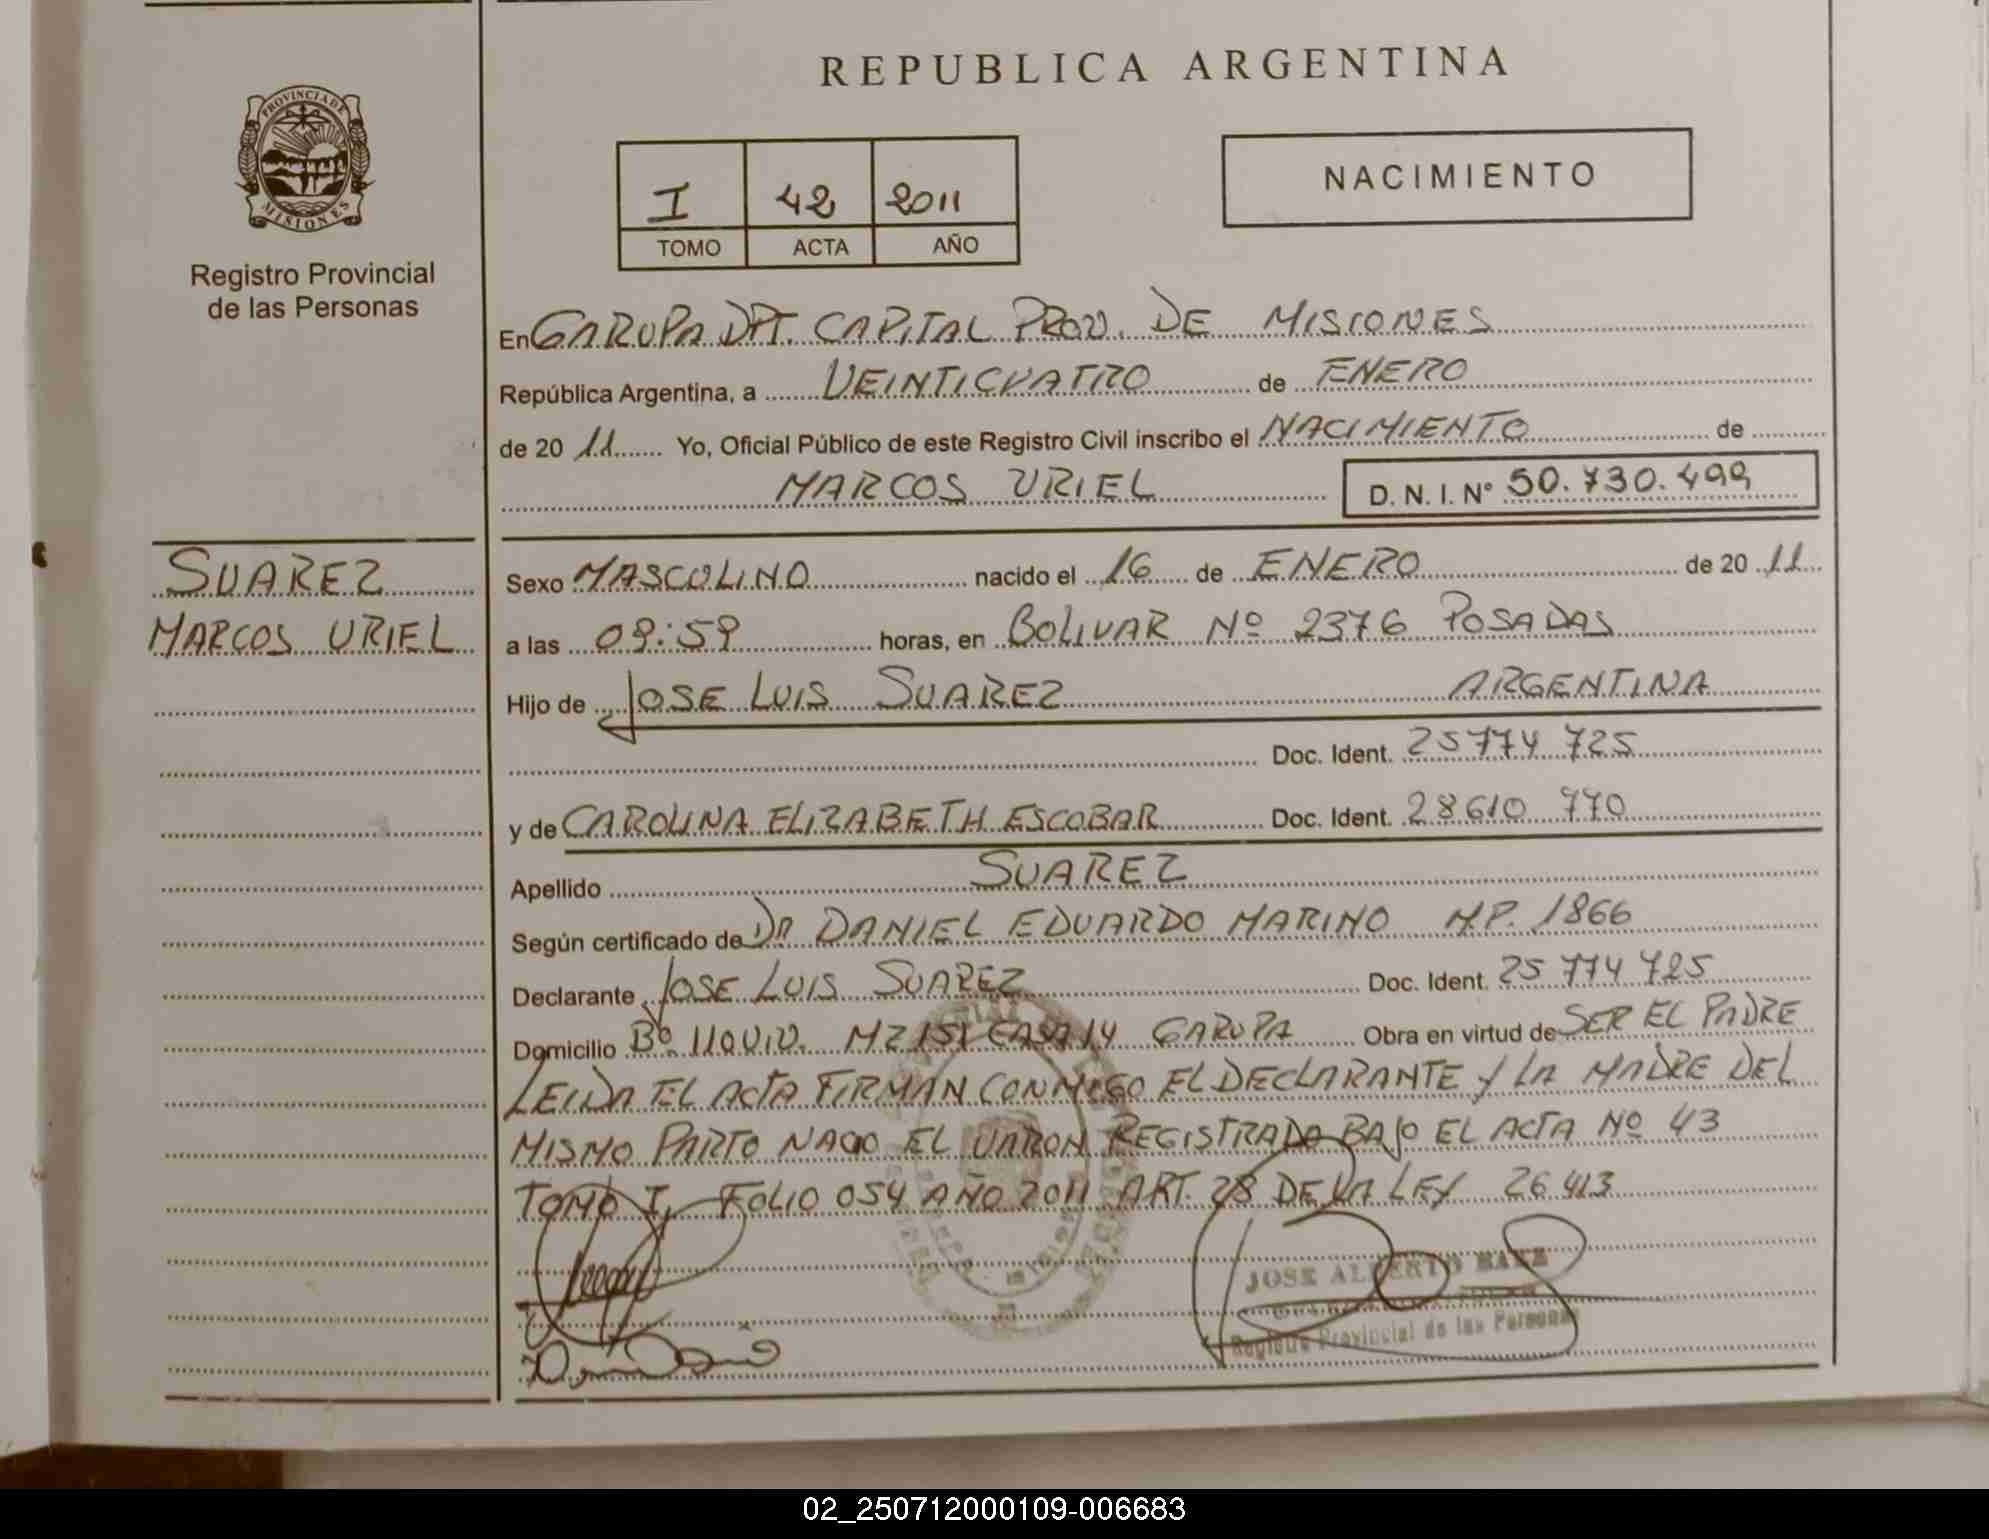 REPUBLICA ARGENTINA
PROVINCIA DE
MISIONES
Registro Provincial
de las Personas
I 42 2011
TOMO ACTA AÑO
NACIMIENTO
En GARUPA DPT. CAPITAL PROV. DE MISIONES
República Argentina, a VEINTICUATRO de ENERO
de 20 11 Yo, Oficial Público de este Registro Civil inscribo el NACIMIENTO de
MARCOS URIEL D. N. I. Nº 50.730.499
SUAREZ
MARCOS URIEL
Sexo MASCULINO nacido el 16 de ENERO de 20 11
a las 09:59 horas, en BOLIVAR Nº 2376 POSADAS
Hijo de JOSE LUIS SUAREZ ARGENTINA
Doc. Ident. 25774 725
y de CAROLINA ELIZABETH ESCOBAR Doc. Ident. 28610 770
Apellido SUAREZ
Según certificado de Dr DANIEL EDUARDO MARINO M.P. 1866
Declarante JOSE LUIS SUAREZ Doc. Ident. 25 774 725
Domicilio Bº 110 VIV. MZ 151 CASA 14 GARUPA Obra en virtud de SER EL PADRE
LEIDA EL ACTA FIRMAN CONMIGO EL DECLARANTE Y LA MADRE DEL
MISMO PARTO NACIO EL VARON REGISTRADA BAJO EL ACTA Nº 43
TOMO I, FOLIO 054 AÑO 2011 ART. 28 DE LA LEY 26.413
JOSE ALBERTO
Registro Provincial de las Personas
02_250712000109-006683